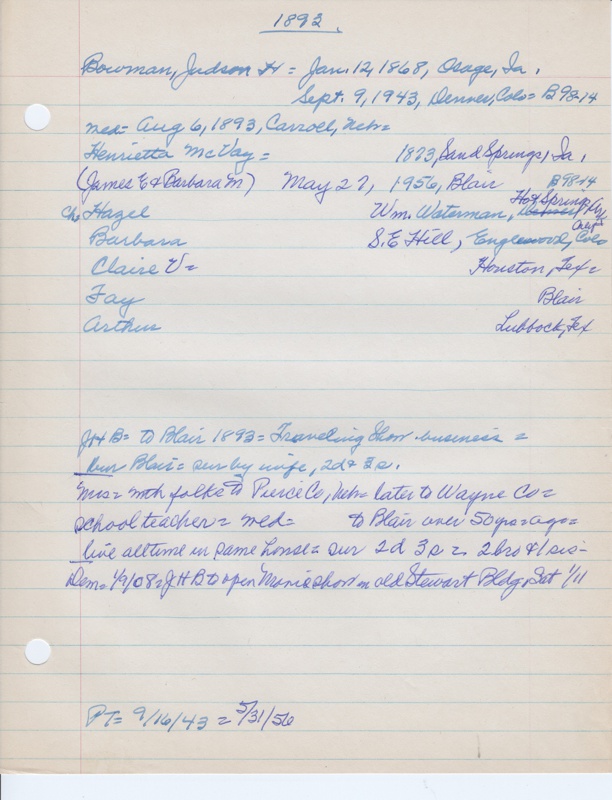 1893.
Bowman, Judson H = Jan. 12, 1868, Osage, Ia.
Sept. 9, 1943, Denver, Colo = B 98-14
med = Aug 6, 1893, Carroll, Neb =
Henrietta McVay = 1873, Sand Springs, Ia.
(James E & Barbara M) May 27, 1956, Blair B 98-14
Hot Springs, Ark
Ch. Hazel Wm. Waterman, Calif
Barbara S. E Hill, Englewood, Colo
Claire V = Houston, Tex =
Fay Blair
Arthur Lubbock, Tex
JHB = to Blair 1893 = Traveling Show business =
bur Blair = sur by wife, 2d & 3s.
Mrs = with folks to Pierce Co, Neb = later to Wayne Co =
school teacher = med = to Blair over 50 yrs ago =
live all time in same house = sur 2d 3s = 2 bro & 1 sis -
Dem = 1/9/08 = JHB to open Movie show in old Stewart Bldg, Sat 1/11
PT = 9/16/43 = 5/31/56